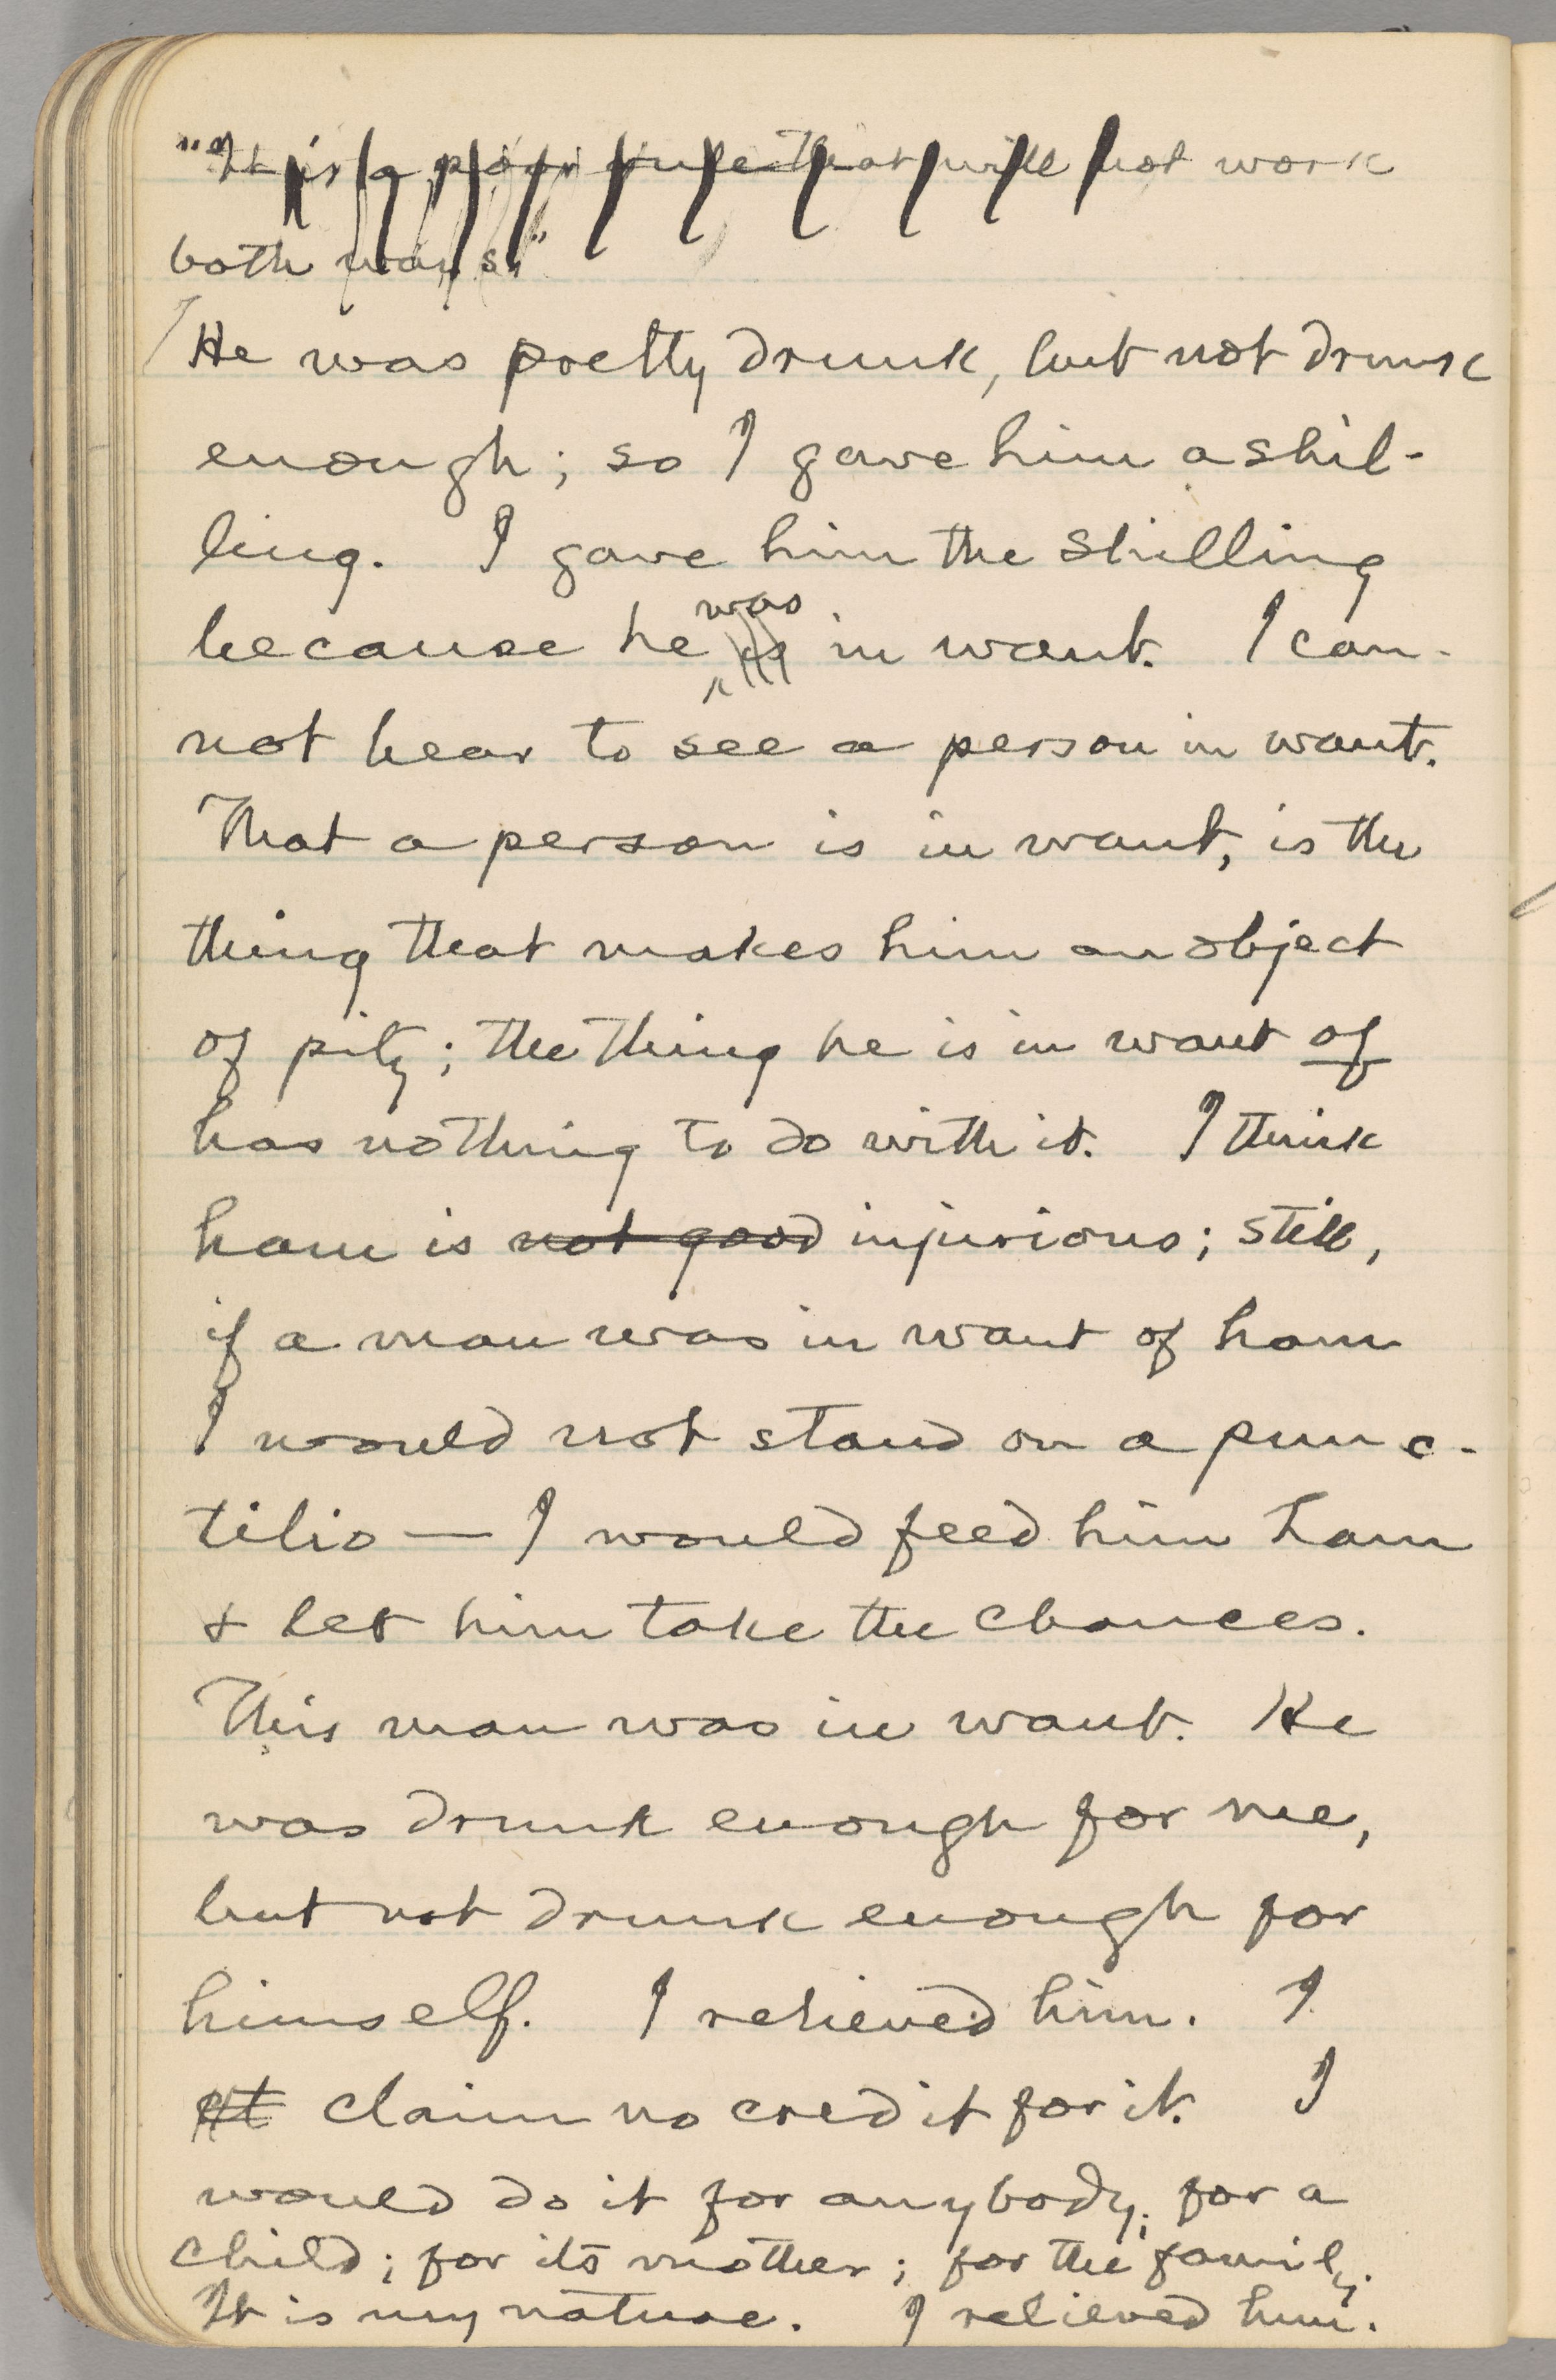 "It is a poor rule that will not work
both ways."
He was pretty drunk, but not drunk
enough; so I gave him a shil-
ling. I gave him the shilling
because he was is in want. I can-
not bear to see a person in want.
That a person is in want, is the
thing that makes him an object
of pity; the thing he is in want of
has nothing to do with it. I think
ham is not good injurious; still,
if a man was in want of ham
I would not stand on a punc-
tilio — I would feed him ham
& let him take the chances.
This man was in want. He
was drunk enough for me,
but not drunk enough for
himself. I relieved him. I
claim no credit for it. I
would do it for anybody; for a
child; for its mother; for the family.
It is my nature. I relieved him.